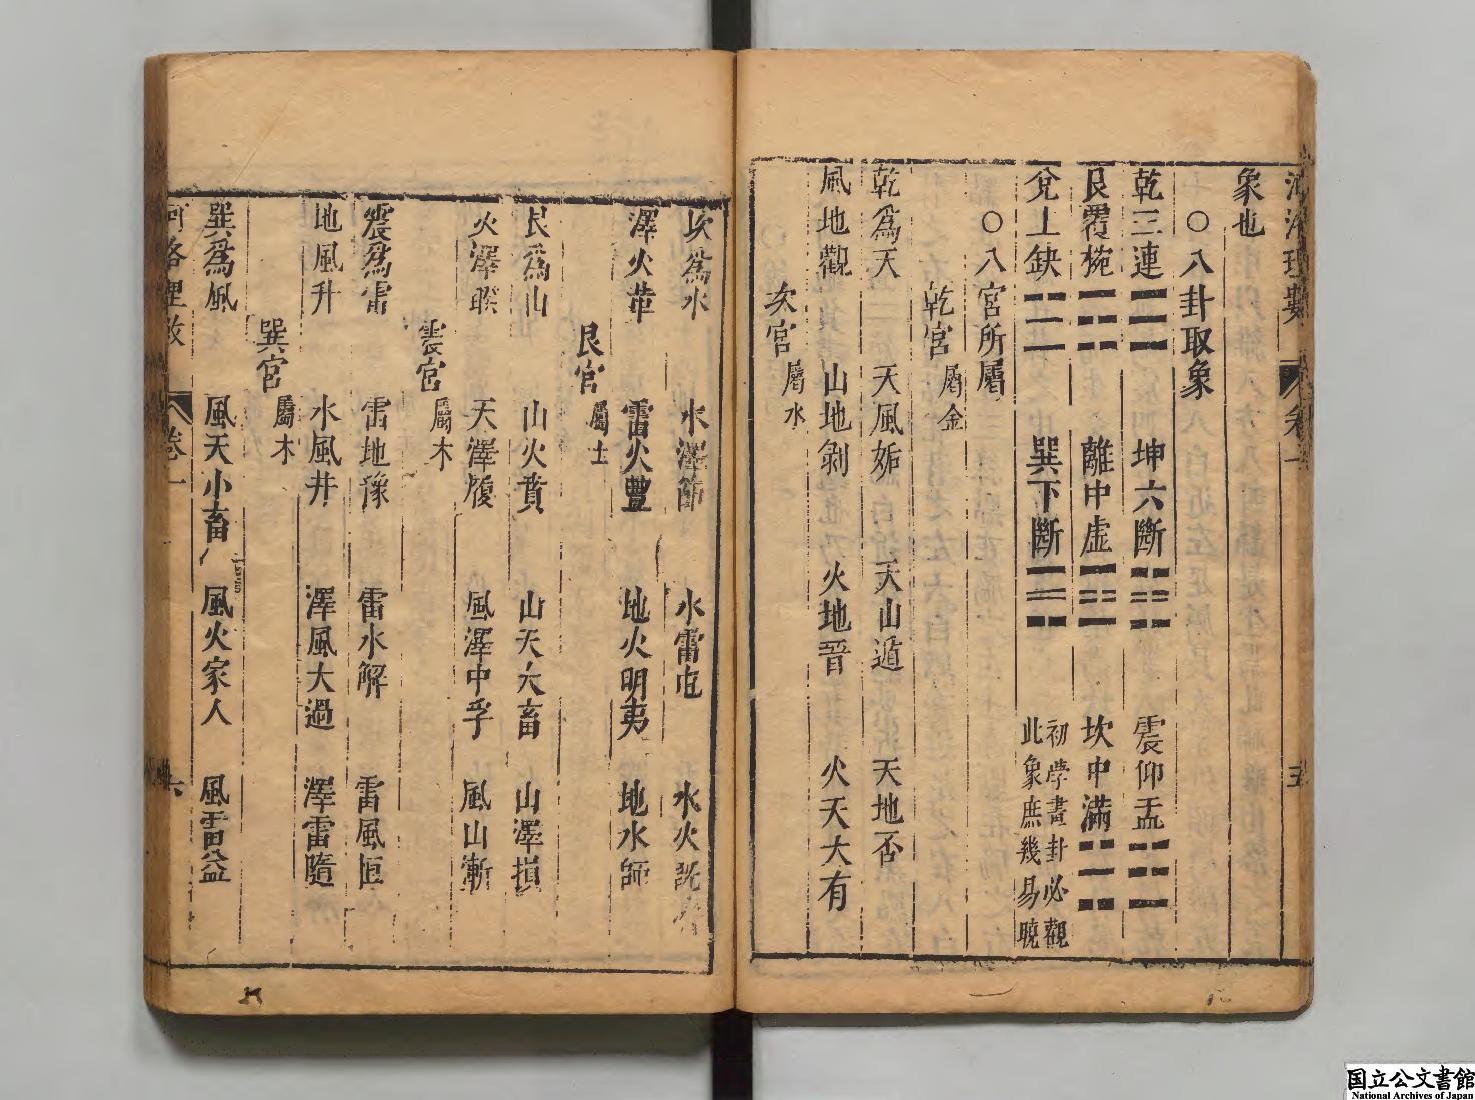 象也
○八卦取象
乾三連☰ 坤六斷☷ 震仰盂☳
艮覆椀☶ 離中虛☲ 坎中滿☵
兌上缺☱ 巽下斷☴ 初學書卦必觀此象庶幾易曉
○八宮所屬
乾宮屬金
乾爲天 天風姤 天山遁 天地否
風地觀 山地剝 火地晉 火天大有
坎宮屬水
卷一
五
坎爲水 水澤節 水雷屯 水火既濟
澤火革 雷火豐 地火明夷 地水師
艮宮屬土
艮爲山 山火賁 山天大畜 山澤損
火澤睽 天澤履 風澤中孚 風山漸
震宮屬木
震爲雷 雷地豫 雷水解 雷風恒
地風升 水風井 澤風大過 澤雷隨
巽宮屬木
巽爲風 風天小畜 風火家人 風雷益
河洛理數 卷一 六
国立公文書館
National Archives of Japan